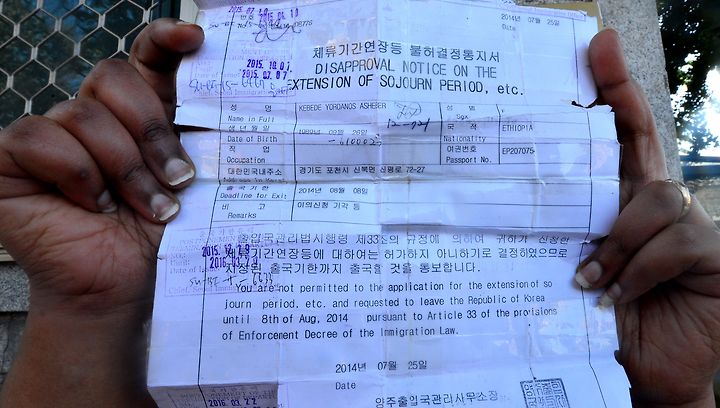 2015.07.10
2015.04.10
번호
2014년 07월 25일
체류기간연장등 불허결정통지서
DISAPPROVAL NOTICE ON THE
EXTENSION OF SOJOURN PERIOD, etc.
2015.10.07
2015.03.07
성 명
Name in Full
KEBEDE YORDANOS ASHEBER
성 별
Sex
생년월일
Date of Birth
국 적
Nationality
ETHIOPIA
직 업
Occupation
여권번호
Passport No.
EP207075
대한민국내주소
경기도 포천시 신북면 신평로 72-27
출국기한
Deadline for Exit
2014년 08월 08일
비 고
Remarks
이의신청 기각 등
출입국관리법시행령 제33조의 규정에 의하여 귀하가 신청한
체류기간연장등에 대하여는 허가하지 아니하기로 결정하였으므로
지정된 출국기한까지 출국할 것을 통보합니다.
You are not permitted to the application for the extension of so
journ period, etc. and requested to leave the Republic of Korea
until 8th of Aug, 2014 pursuant to Article 33 of the provisions
of Enforcement Decree of the Immigration Law.
2014년 07월 25일
Date
양주출입국관리사무소장
2016.03.22